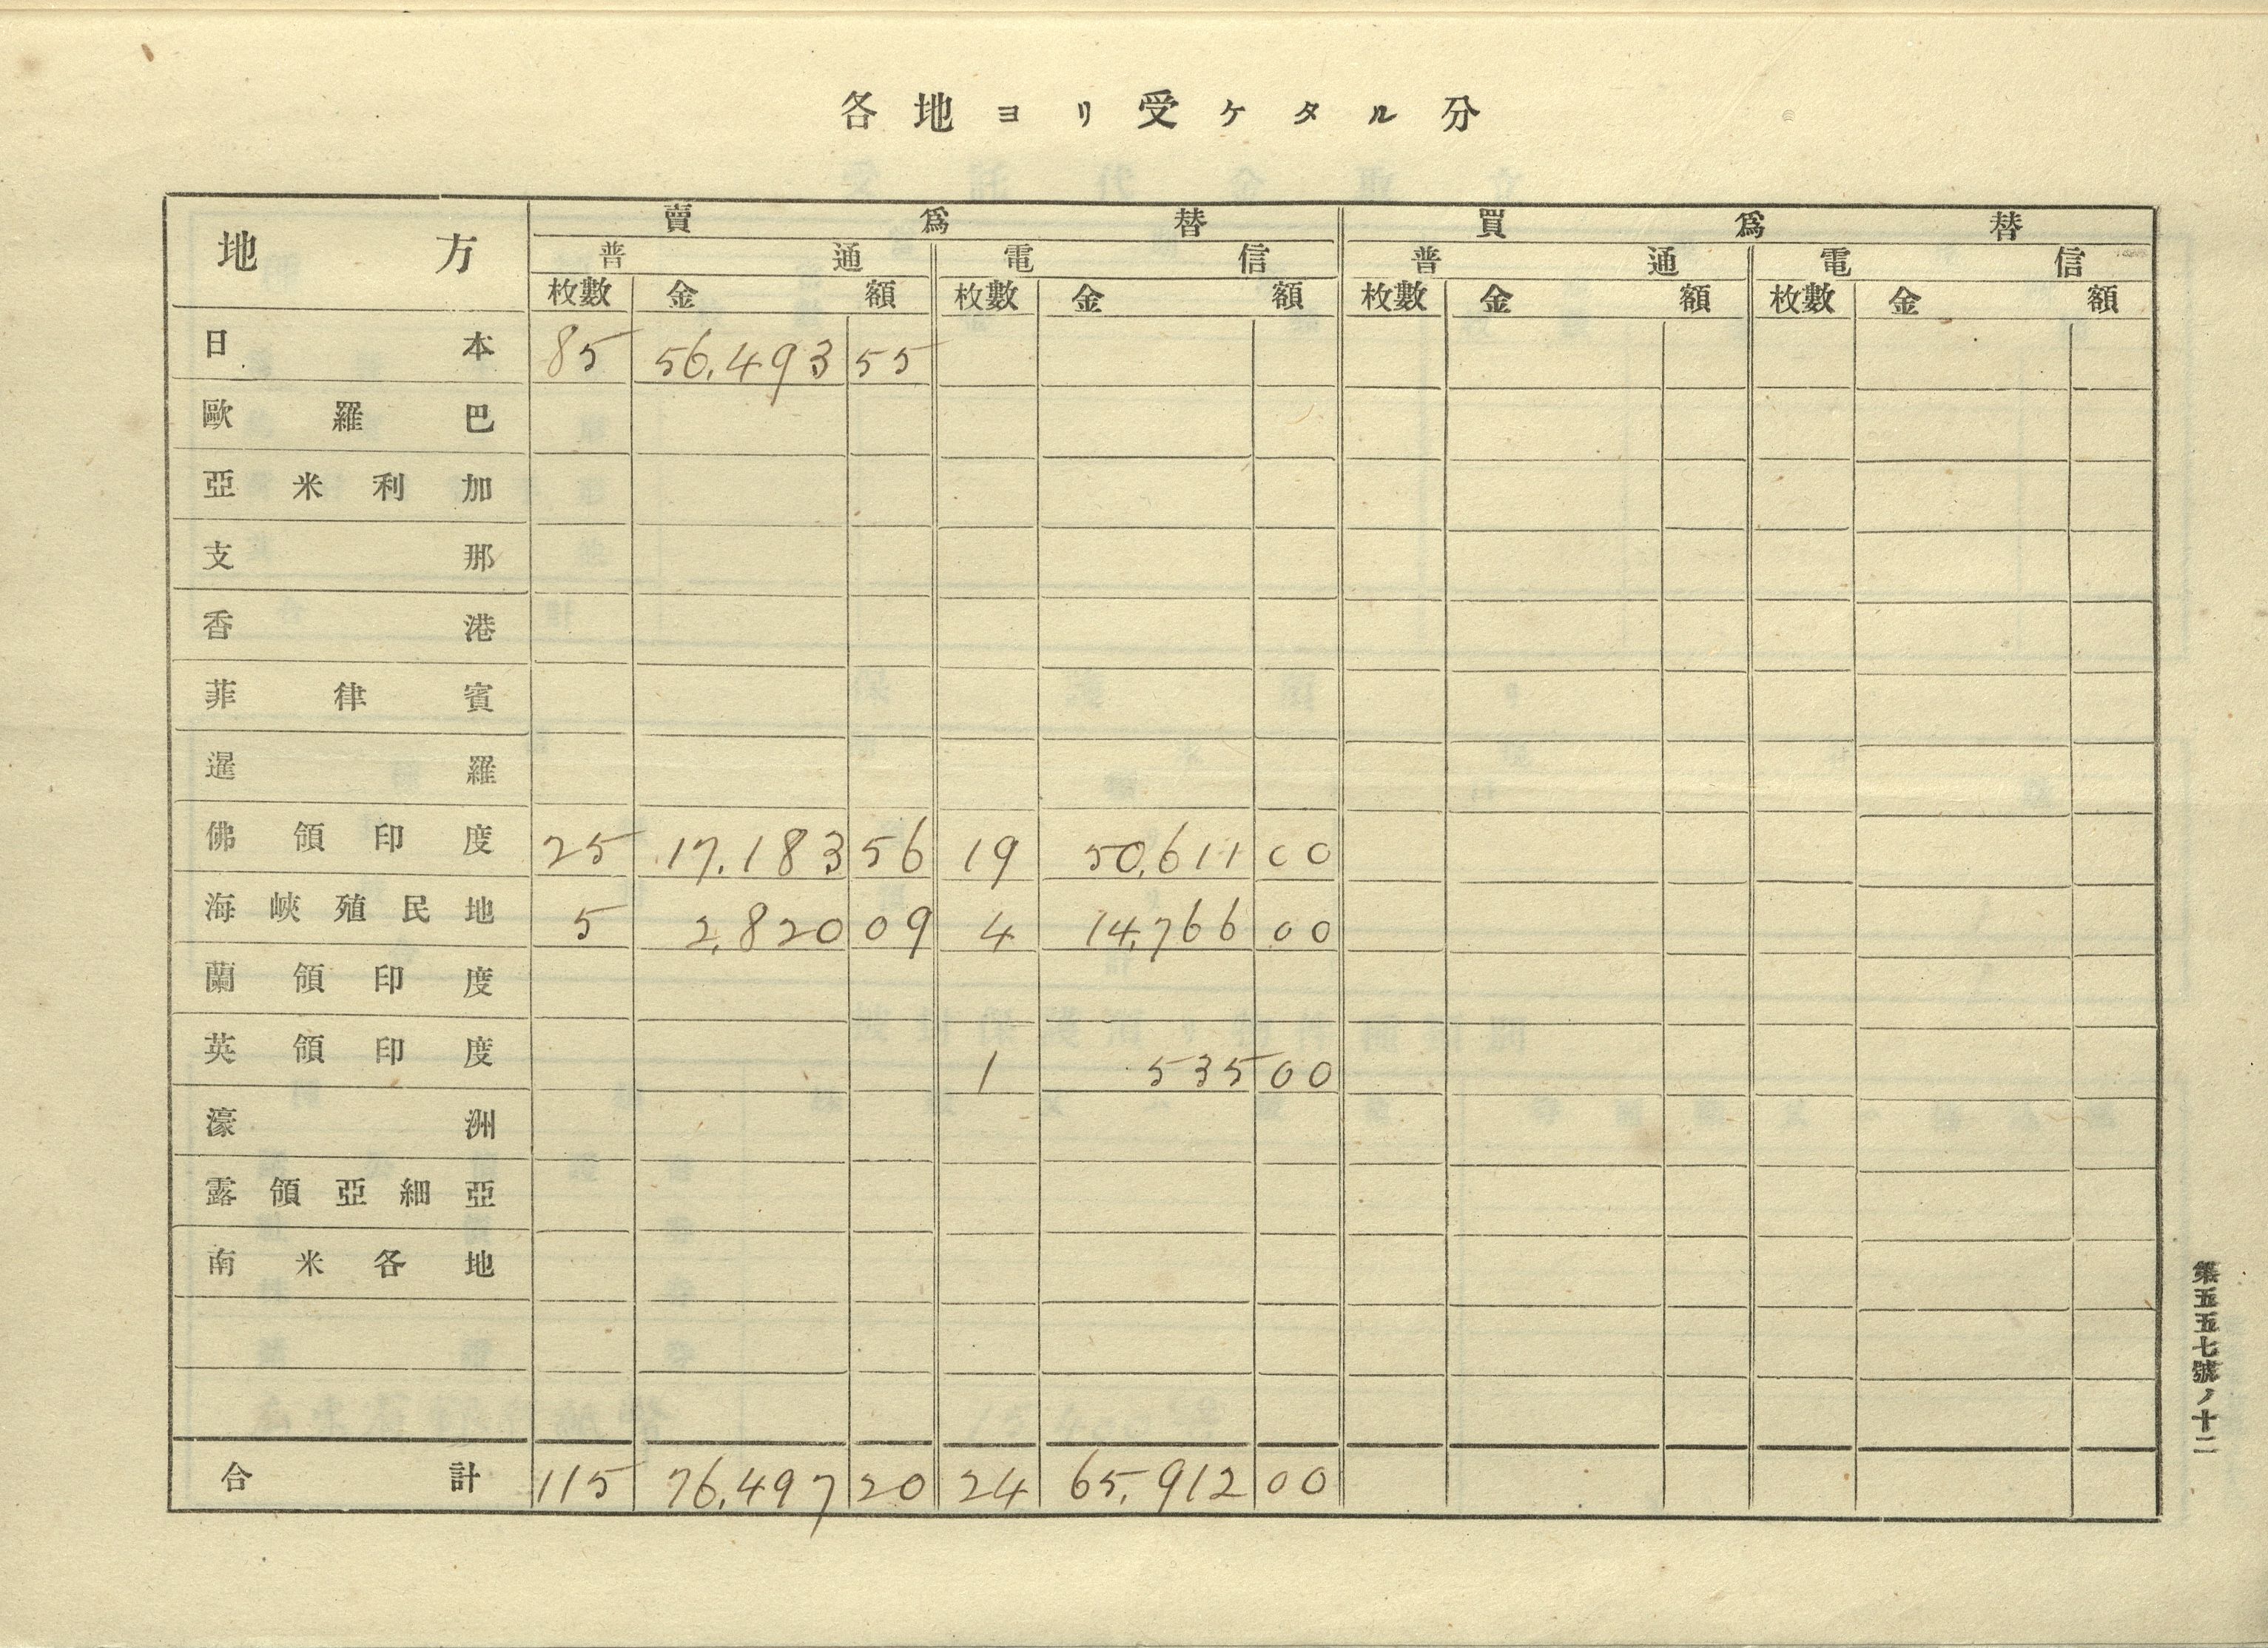 各地ヨリ受ケタル分
地方 賣爲替 買爲替
普通 電信 普通 電信
枚數 金額 枚數 金額 枚數 金額 枚數 金額
日本 85 56,493 55
歐羅巴
亞米利加
支那
香港
菲律賓
暹羅
佛領印度 25 17,183 56 19 50,611 00
海峽殖民地 5 2,820 09 4 14,766 00
蘭領印度
英領印度 1 535 00
濠洲
露領亞細亞
南米各地
合計 115 76,497 20 24 65,912 00
第五五七號ノ十二